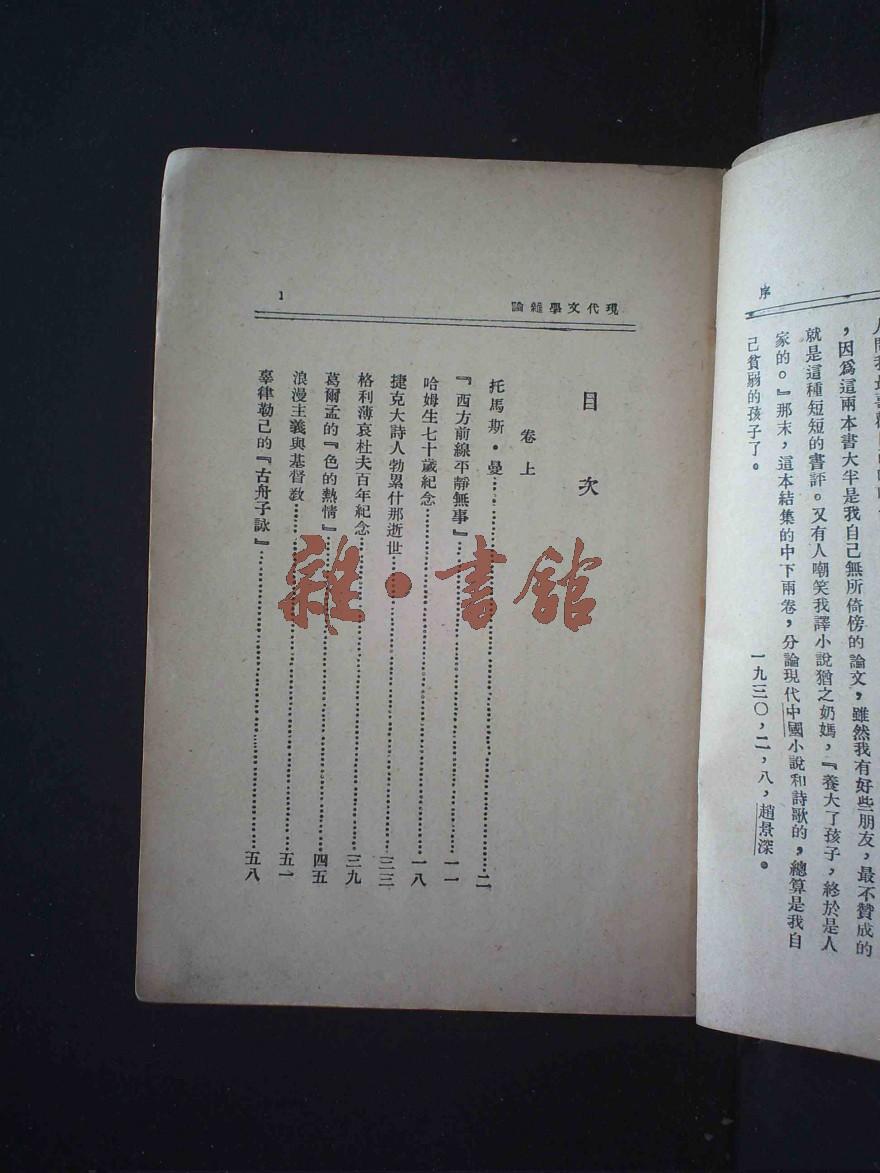 序
，因爲這兩本書大半是我自己無所倚傍的論文，雖然我有好些朋友，最不贊成的
就是這種短短的書評。又有人嘲笑我譯小說猶之奶媽，『養大了孩子，終於是人
家的。』那末，這本結集的中下兩卷，分論現代中國小說和詩歌的，總算是我自
己貧弱的孩子了。
一九三〇，二，八，趙景深。
現代文學雜論
1
目次
卷上
托馬斯・曼……二
『西方前線平靜無事』……一一
哈姆生七十歲紀念……一八
捷克大詩人勃累什那逝世……三三
格利薄哀杜夫百年紀念……三九
葛爾孟的『色的熱情』……四五
浪漫主義與基督教……五一
辜律勒己的『古舟子詠』……五八
雜・書館